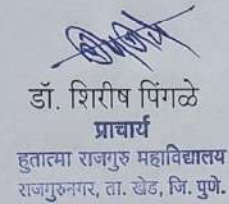 डॉ. शिरीष पिंगळे
प्राचार्य
हुतात्मा राजगुरु महाविद्यालय
राजगुरुनगर, ता. खेड, जि. पुणे.